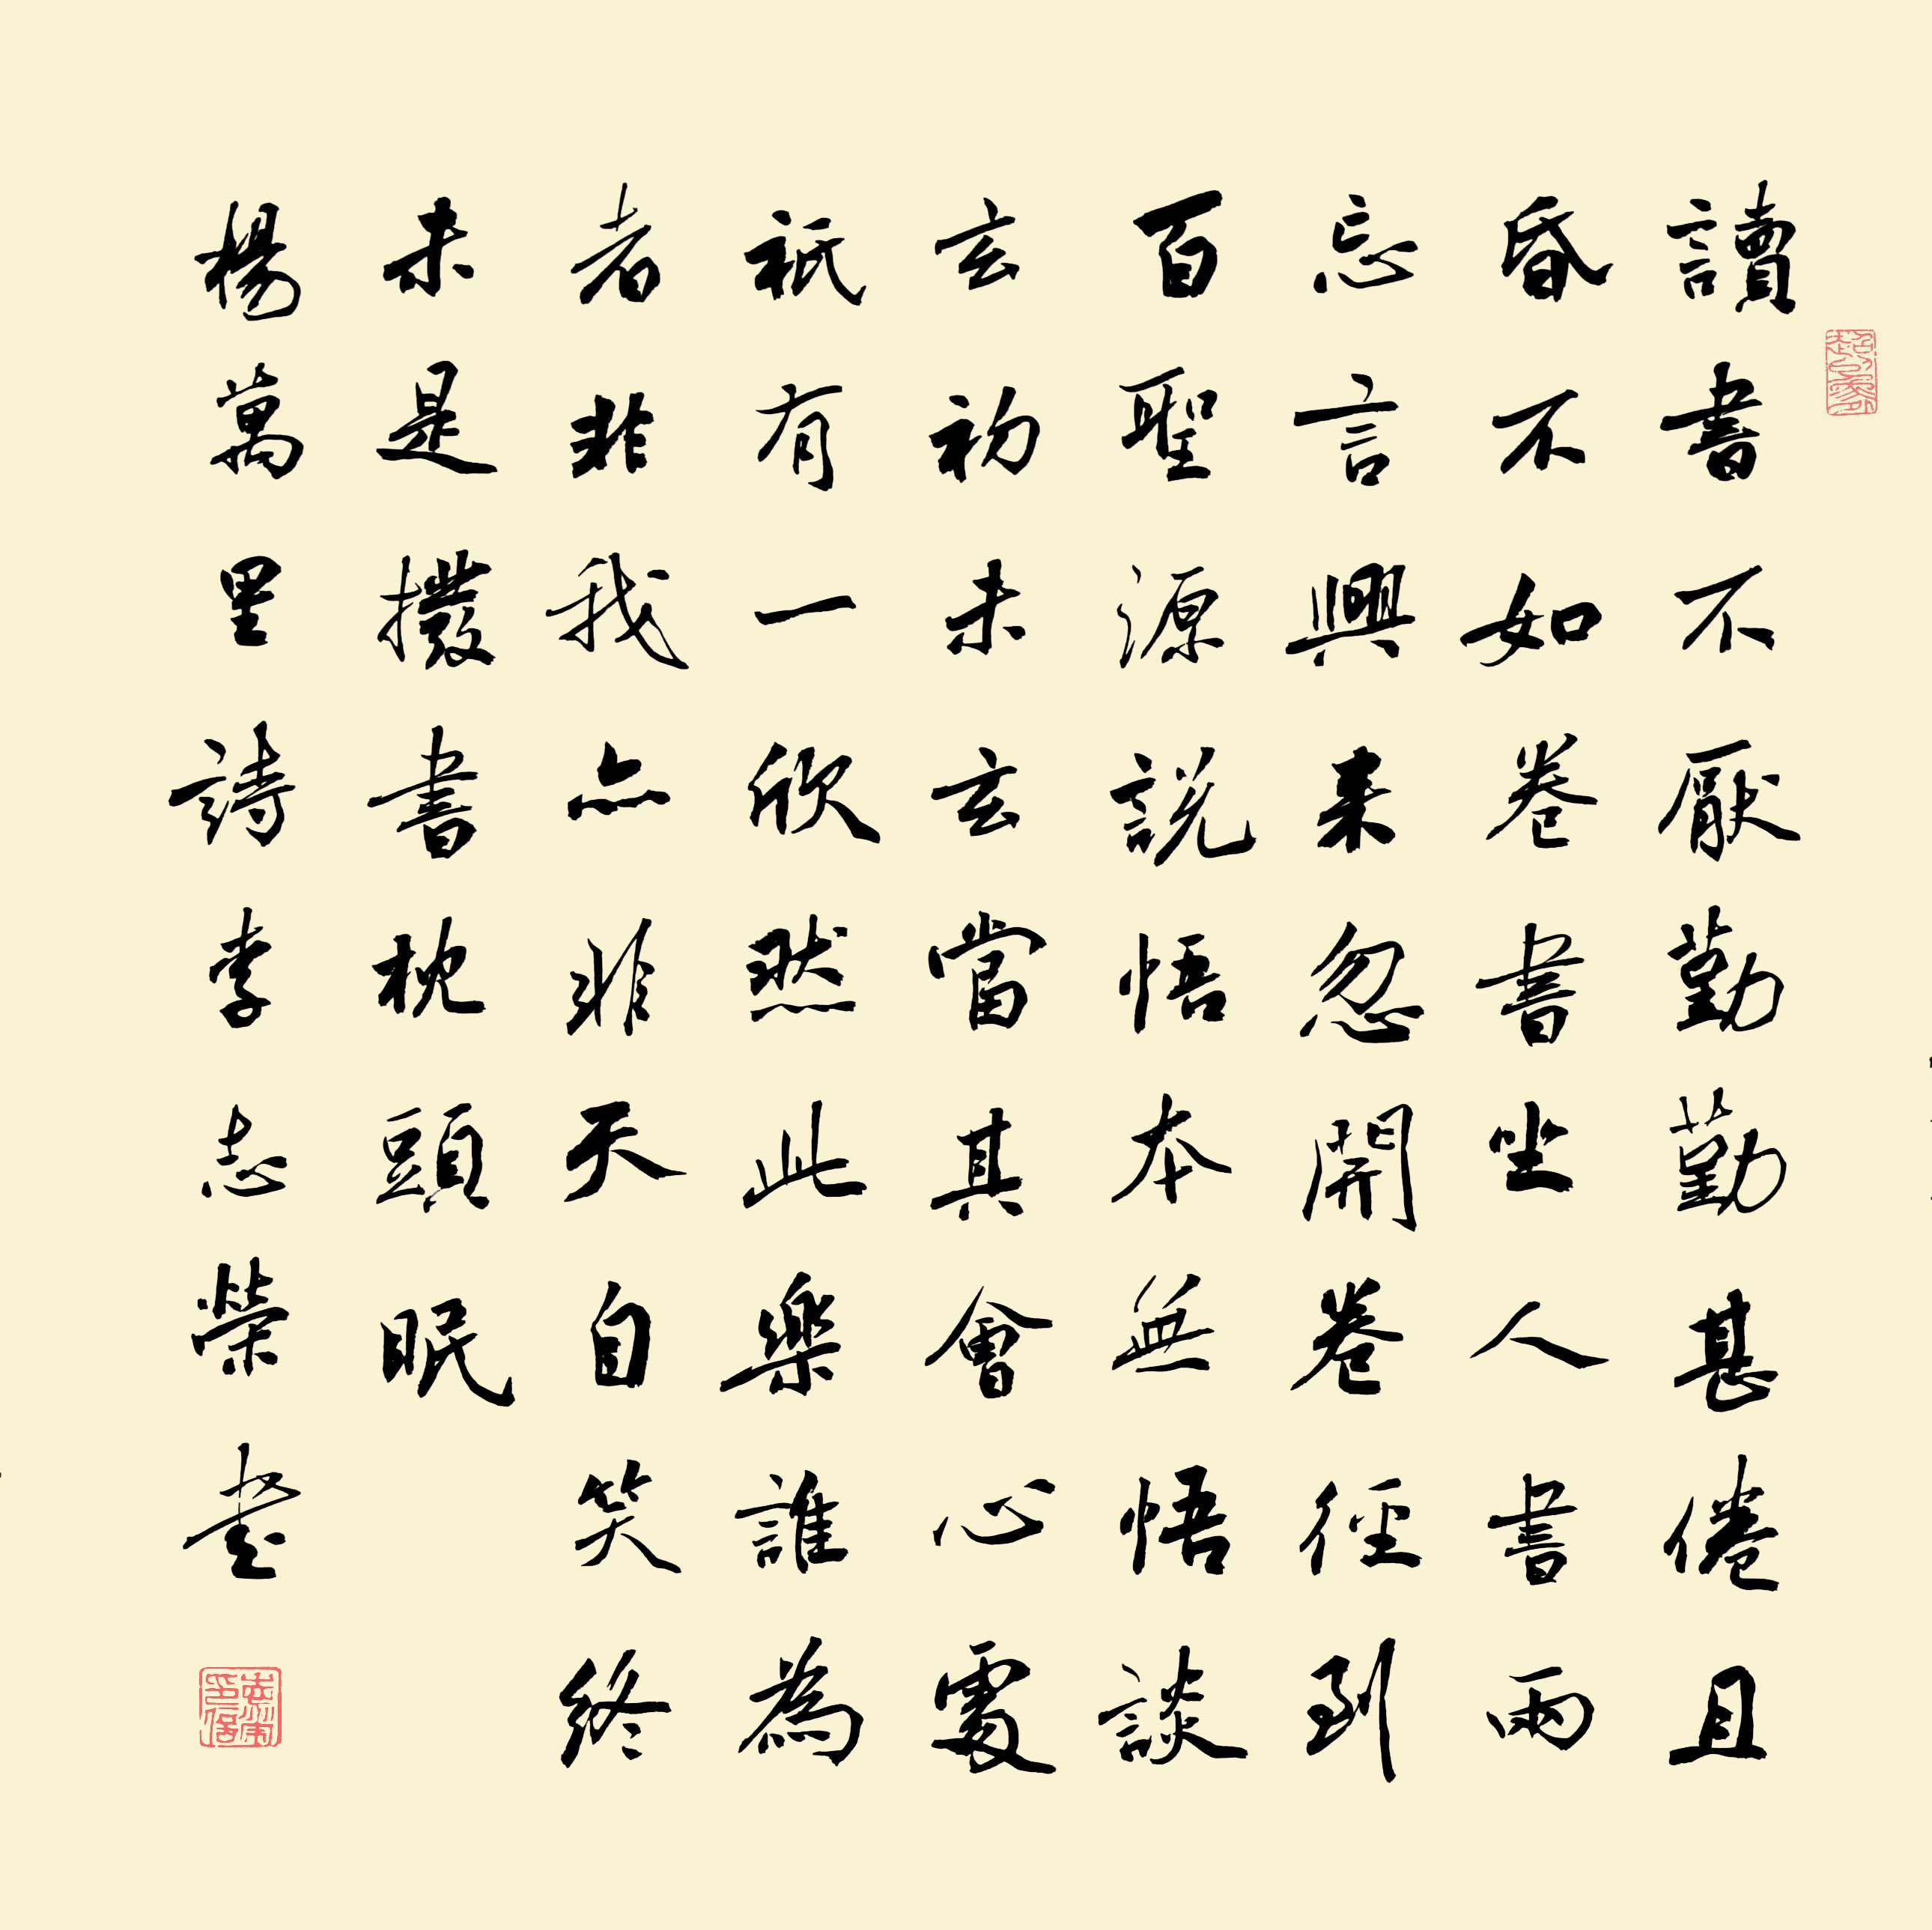 讀書不厭勤勤甚倦且
昏不如卷書坐人書兩
忘言興来忽開卷徑到
百聖源說悟本無悟談
玄初未玄當其會心處
祇有一欣然此樂誰為
者非我亦非天自笑終
未是撥書枕頭眠
楊萬里詩李志榮書